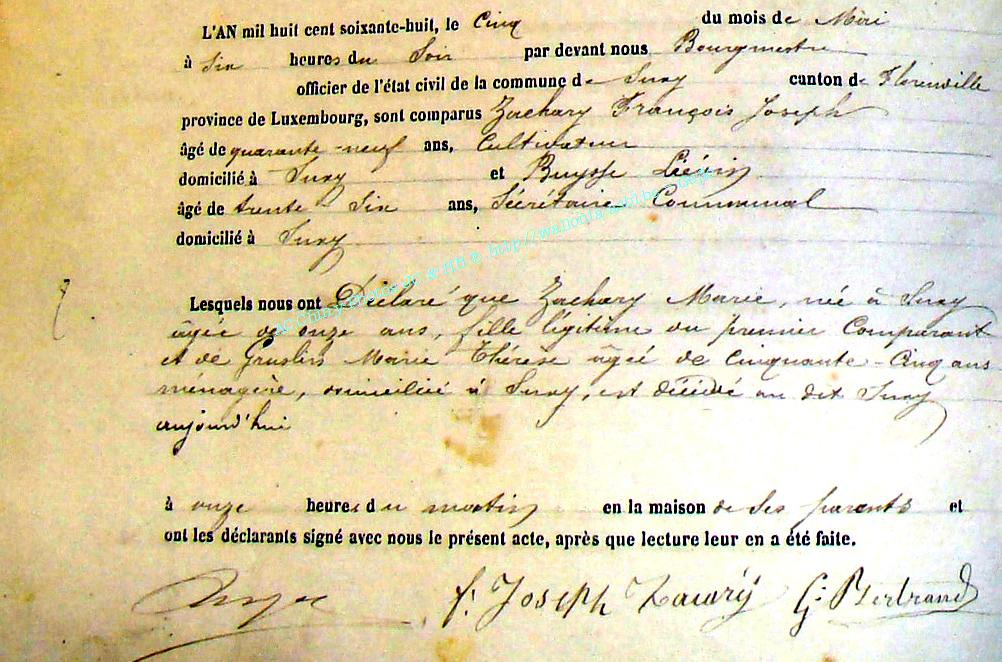 L'AN mil huit cent soixante-huit, le Cinq du mois de
à Six heures du Soir par devant nous Bourgmestre
officier de l'état civil de la commune de Suxy canton de Florenville
province de Luxembourg, sont comparus Zachary François Joseph
âgé de quarante-neuf ans, Cultivateur
domicilié à Suxy et Buysse Liévin
âgé de trente-Six ans, Sécrétaire Communal
domicilié à Suxy
Lesquels nous ont Déclaré que Zachary Marie, née à Suxy
âgée de onze ans, fille légitime du premier Comparant
et de Marie Thérèse âgée de Cinquante-Cinq ans
ménagère, domiciliée à Suxy, est décédé au dit Suxy
aujourd'hui
à onze heures du matin en la maison de Ses parents et
ont les déclarants signé avec nous le présent acte, après que lecture leur en a été faite.
f: Joseph Zacary G: Bertrand